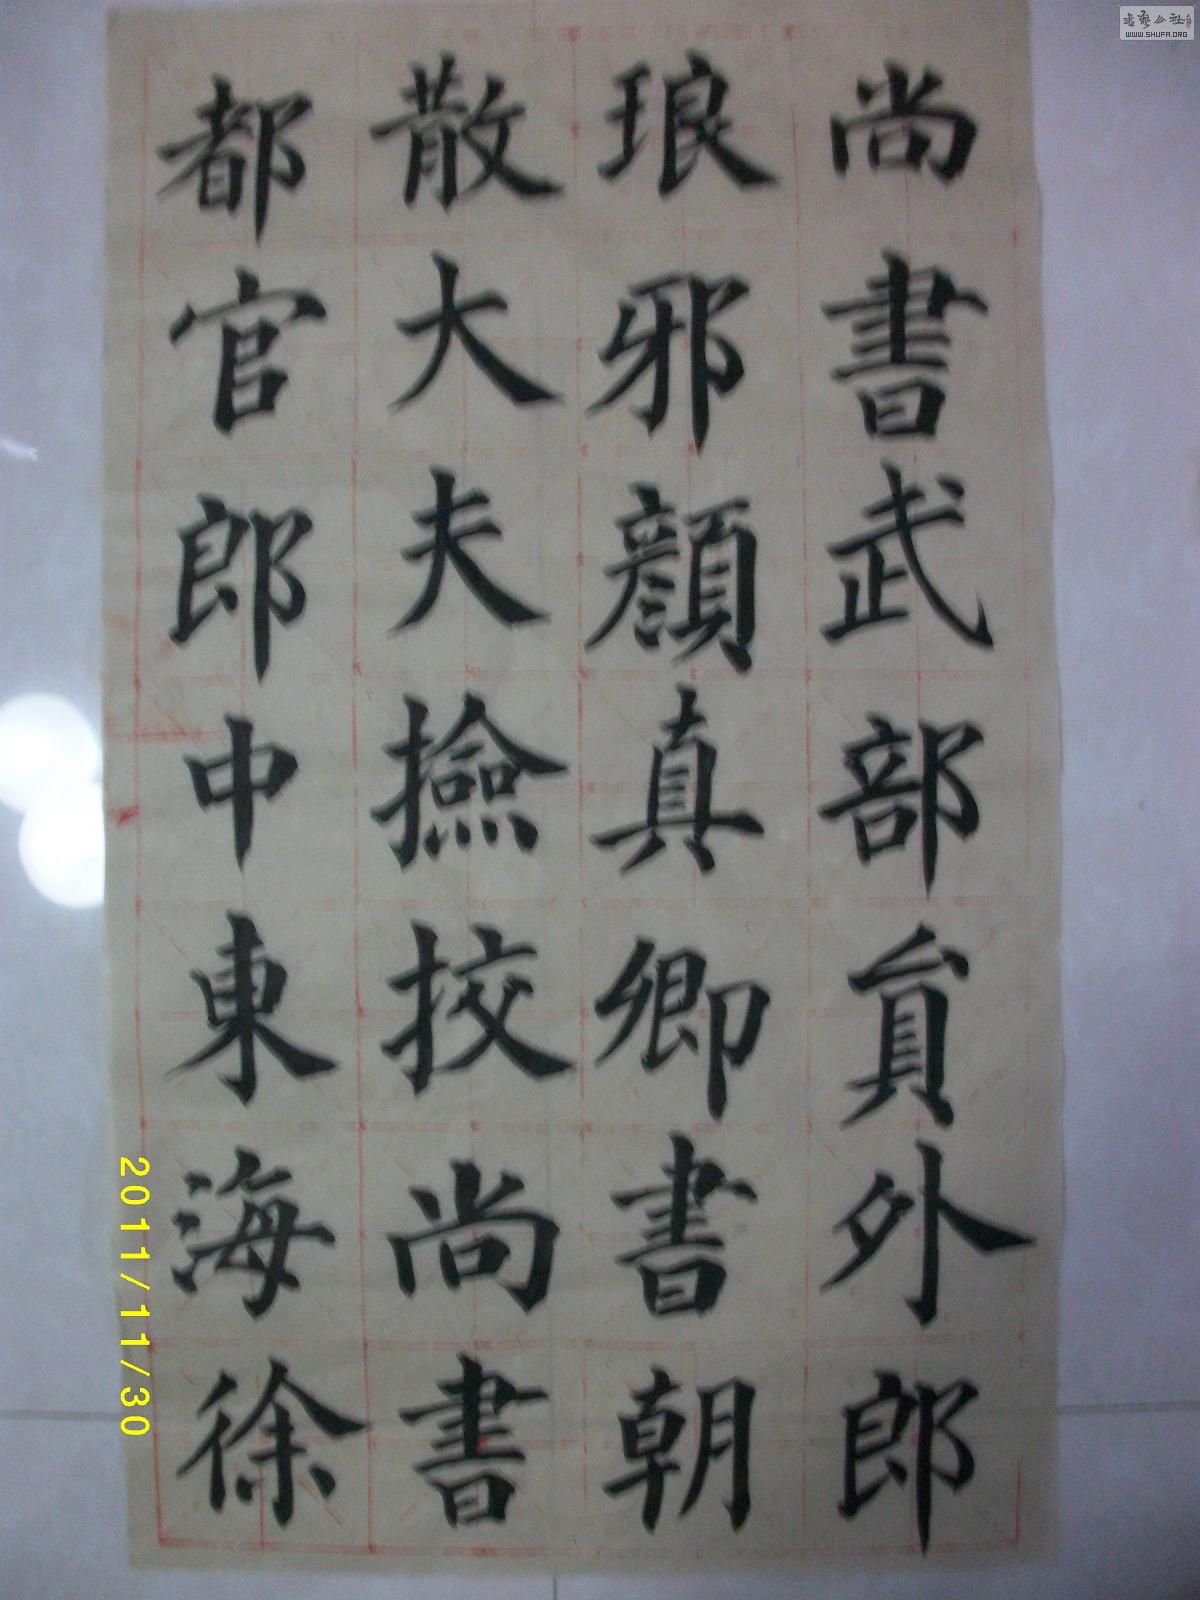 尚書武部貟外郎
琅邪顔真卿書朝
散大夫撿挍尚書
都官郎中東海徐
2011/11/30
书艺公社
WWW.SHUFA.ORG